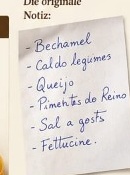 Die originale
Notiz:
- Bechamel
- Caldo legumes
- Queijo
- Pimentos do Reino
- Sal a gosto
- Fettucine.